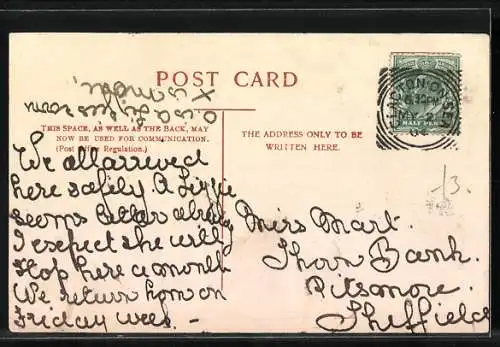 POST CARD
THIS SPACE, AS WELL AS THE BACK, MAY
NOW BE USED FOR COMMUNICATION.
(Post Office Regulation.)
THE ADDRESS ONLY TO BE
WRITTEN HERE.
CLACTON-ON-SEA
MY 2
We all arreved
here safely & Lizzie
seems better already
I expect she will
stop here a month
We return hom on
Friday week. -
Miss Mart.
Thorn Bank.
Pitsmore.
Sheffield
/3.